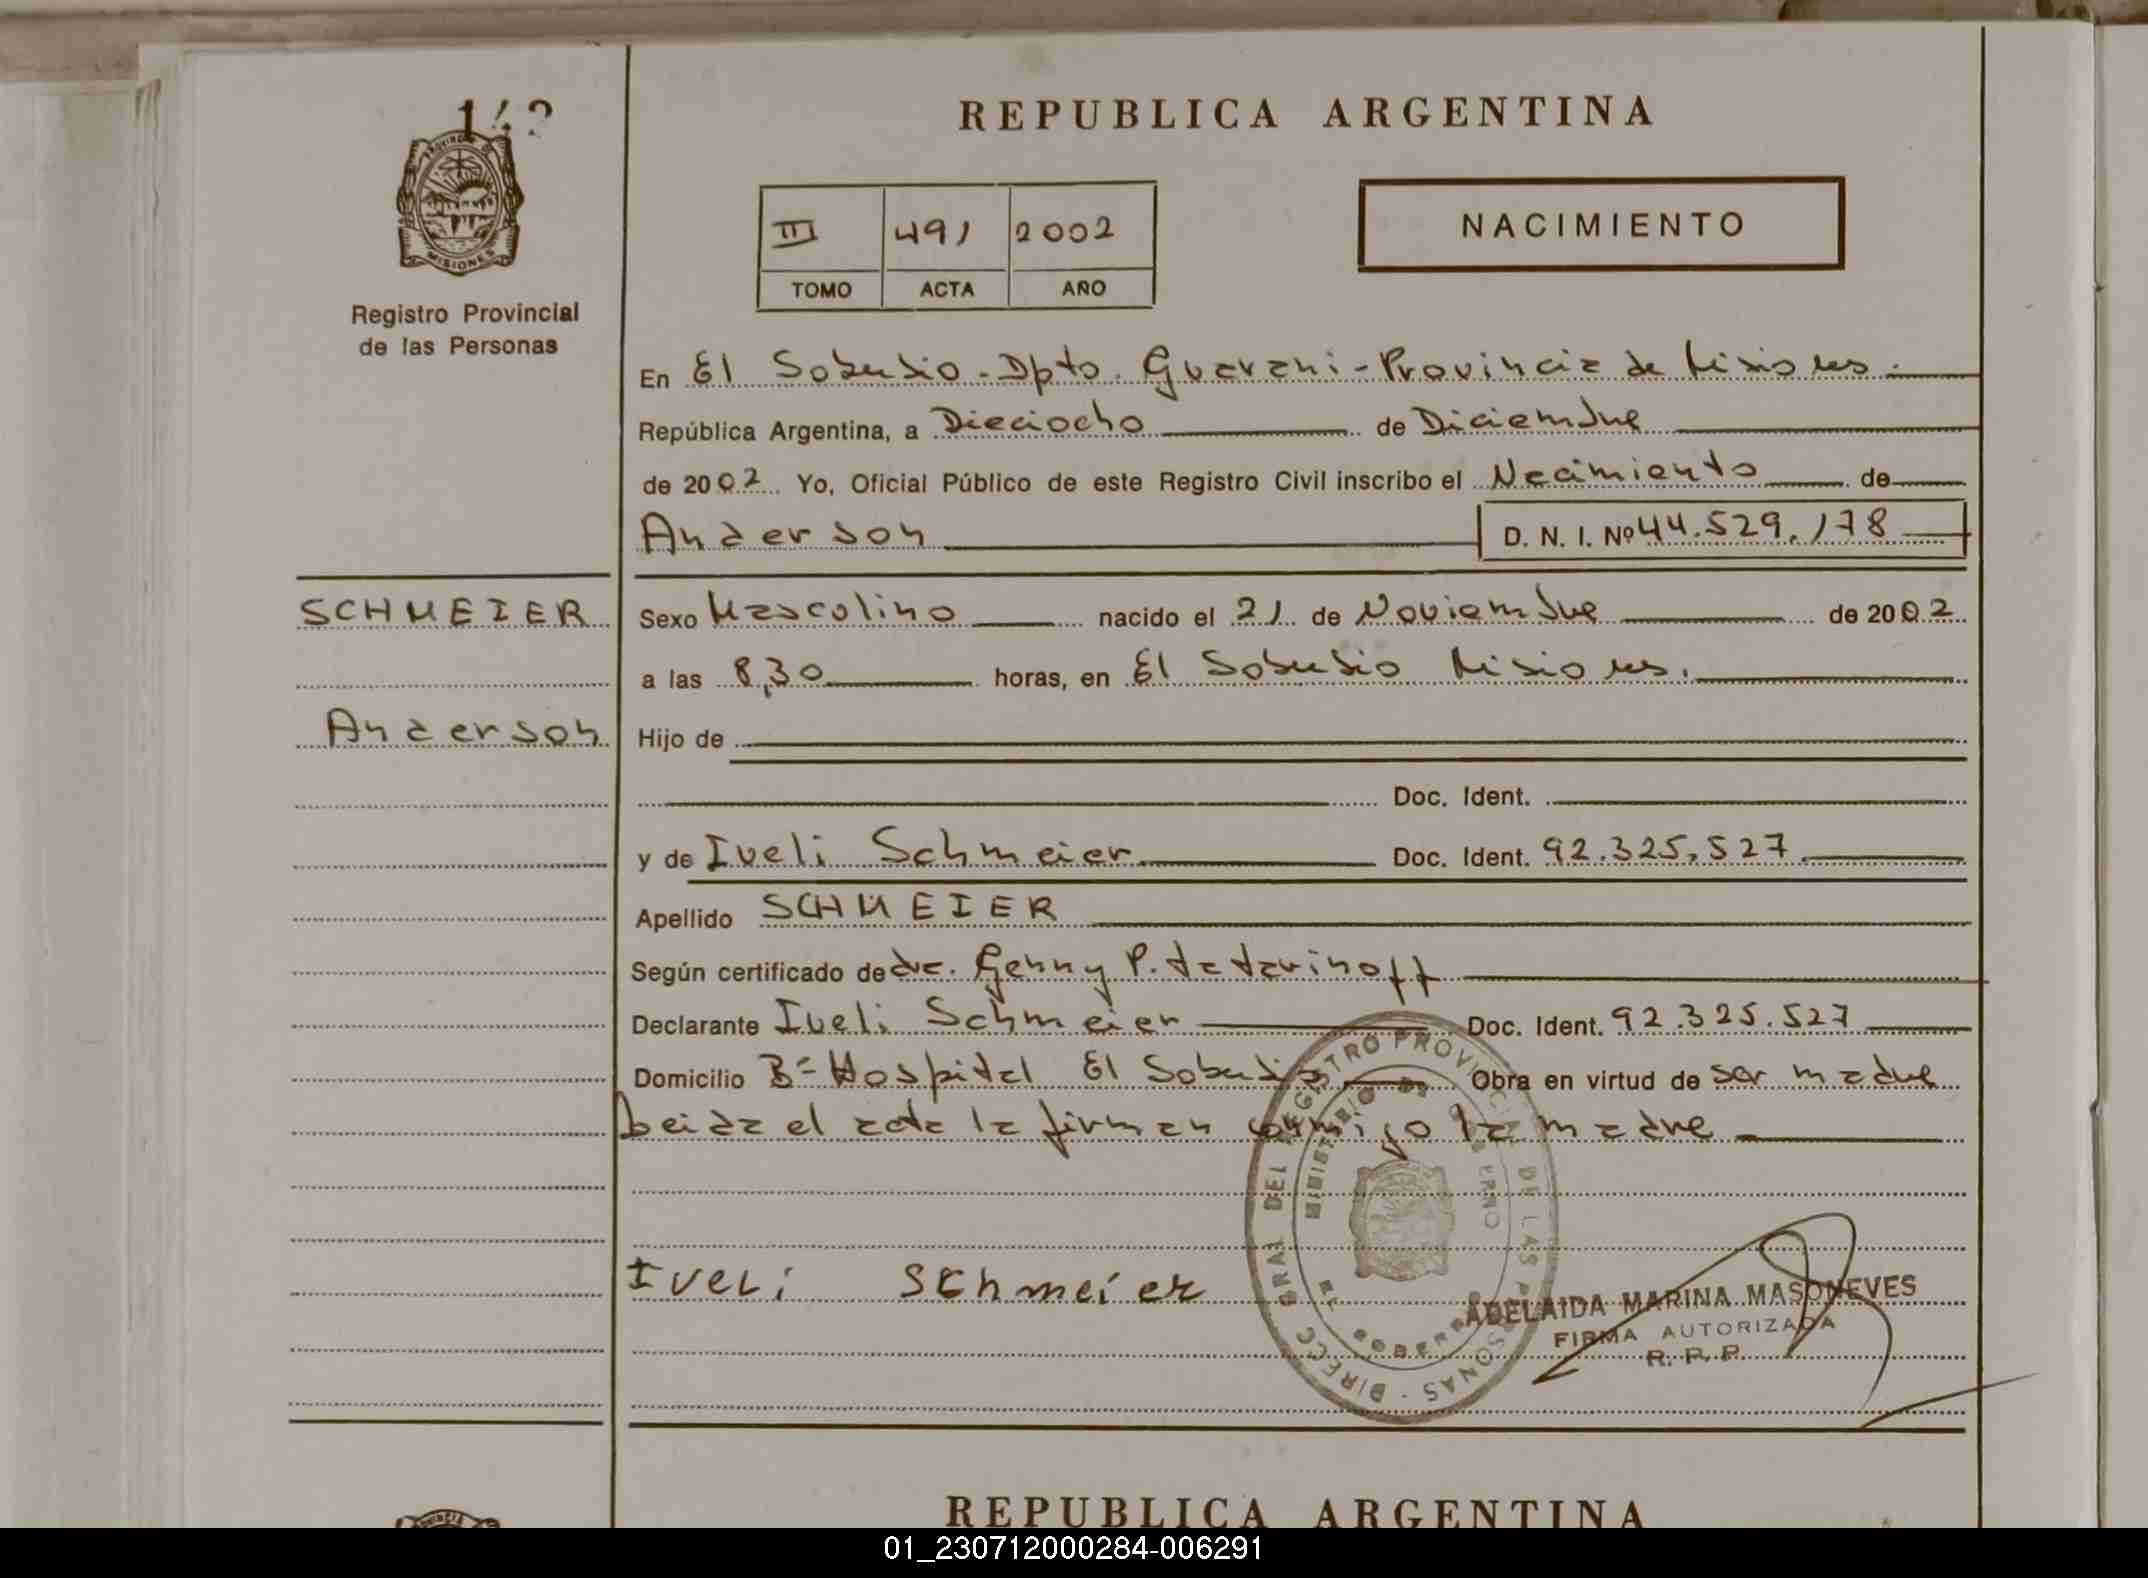 142
REPUBLICA ARGENTINA
PROVINCIA DE
MISIONES
III 491 2002
TOMO ACTA AÑO
NACIMIENTO
Registro Provincial
de las Personas
En El Soberbio - Dpto. Guarani - Provincia de Misiones.
República Argentina, a Dieciocho de Diciembre
de 2002 Yo, Oficial Público de este Registro Civil inscribo el Nacimiento de
Anderson D. N. I. Nº 44.529.178
SCHMEIER
Anderson
Sexo Masculino nacido el 21 de Noviembre de 2002
a las 8,30 horas, en El Soberbio Misiones.
Hijo de
Doc. Ident.
y de Iveli Schmeier Doc. Ident. 92.325.527
Apellido SCHMEIER
Según certificado de dra. Genny P. tatarinoff
Declarante Iveli Schmeier Doc. Ident. 92.325.527
Domicilio Bº Hospital El Soberbio Obra en virtud de ser madre
Leida el acta la firman conmigo la madre
DIRECC GRAL DEL REGISTRO PROVINCIAL DE LAS PERSONAS
MINISTERIO DE GOBIERNO
Iveli Schmeier
ADELAIDA MARINA MASONEVES
FIRMA AUTORIZADA
R. P. P.
REPUBLICA ARGENTINA
01_230712000284-006291